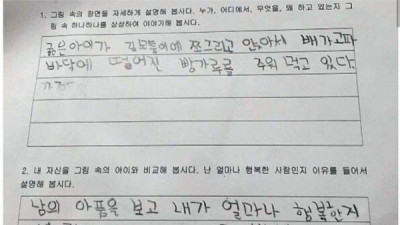 1. 그림 속의 장면을 자세하게 설명해 봅시다. 누가, 어디에서, 무엇을, 왜 하고 있는지 그
림 속 하나하나를 상상하여 이야기해 봅시다.
굶은아이가 길모퉁이에 쪼그리고 앉아서 배가고파
바닥에 떨어진 빵가루를 주워 먹고 있다.
2. 내 자신을 그림 속의 아이와 비교해 봅시다. 난 얼마나 행복한 사람인지 이유를 들어서
설명해 봅시다.
남의 아픔을 보고 내가 얼마나 행복한지